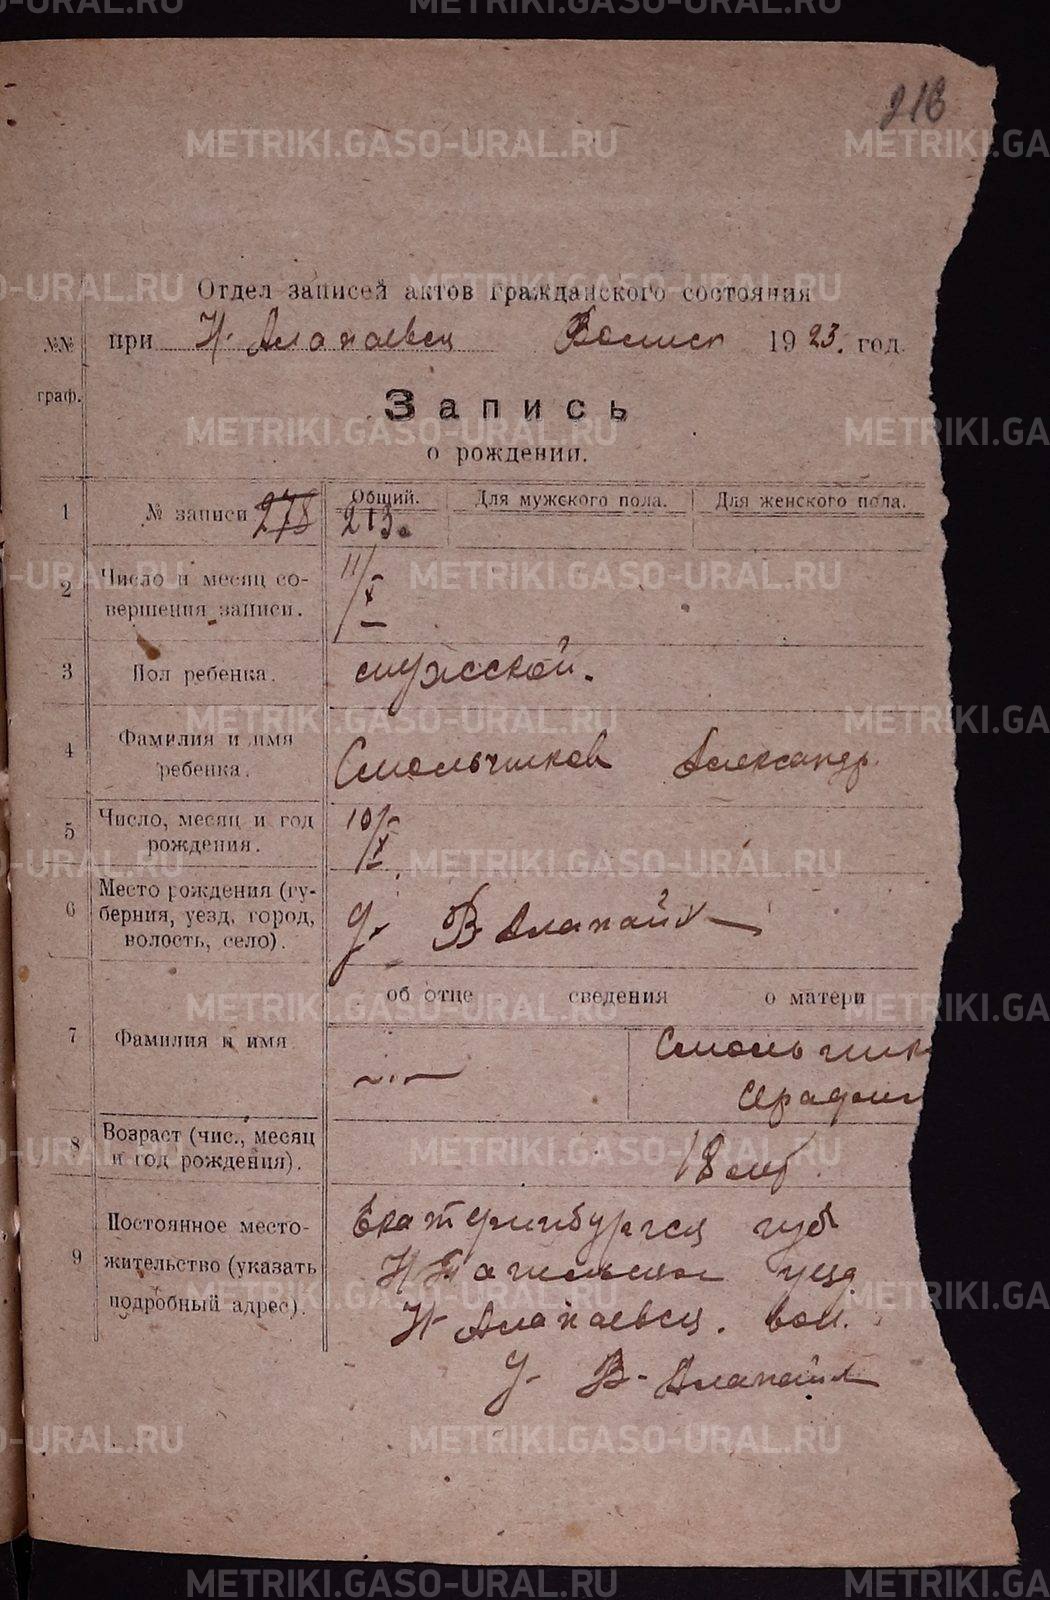 METRIKI.GASO-URAL.RU
Отдел записей актов гражданского состояния
при Н. Алапаевск Волисп 1923. год.
№№ граф.
Запись
о рождении.
1 № записи 278 Общий. 213. Для мужского пола. Для женского пола.
2 Число и месяц со-
вершения записи. 11/X
3 Пол ребенка. мужской.
4 Фамилия и имя
ребенка. Смольчиков Александр.
5 Число, месяц и год
рождения. 10/X
6 Место рождения (гу-
берния, уезд, город,
волость, село). д. В Алапаих
об отце сведения о матери
7 Фамилия и имя Смольчик
Серафим
8 Возраст (чис., месяц
и год рождения). 18 лет
9 Постоянное место-
жительство (указать
подробный адрес).
Екатеринбургск губ
Н Тагильском уезд
Н Алапаевск. вол.
д. В. Алапаих